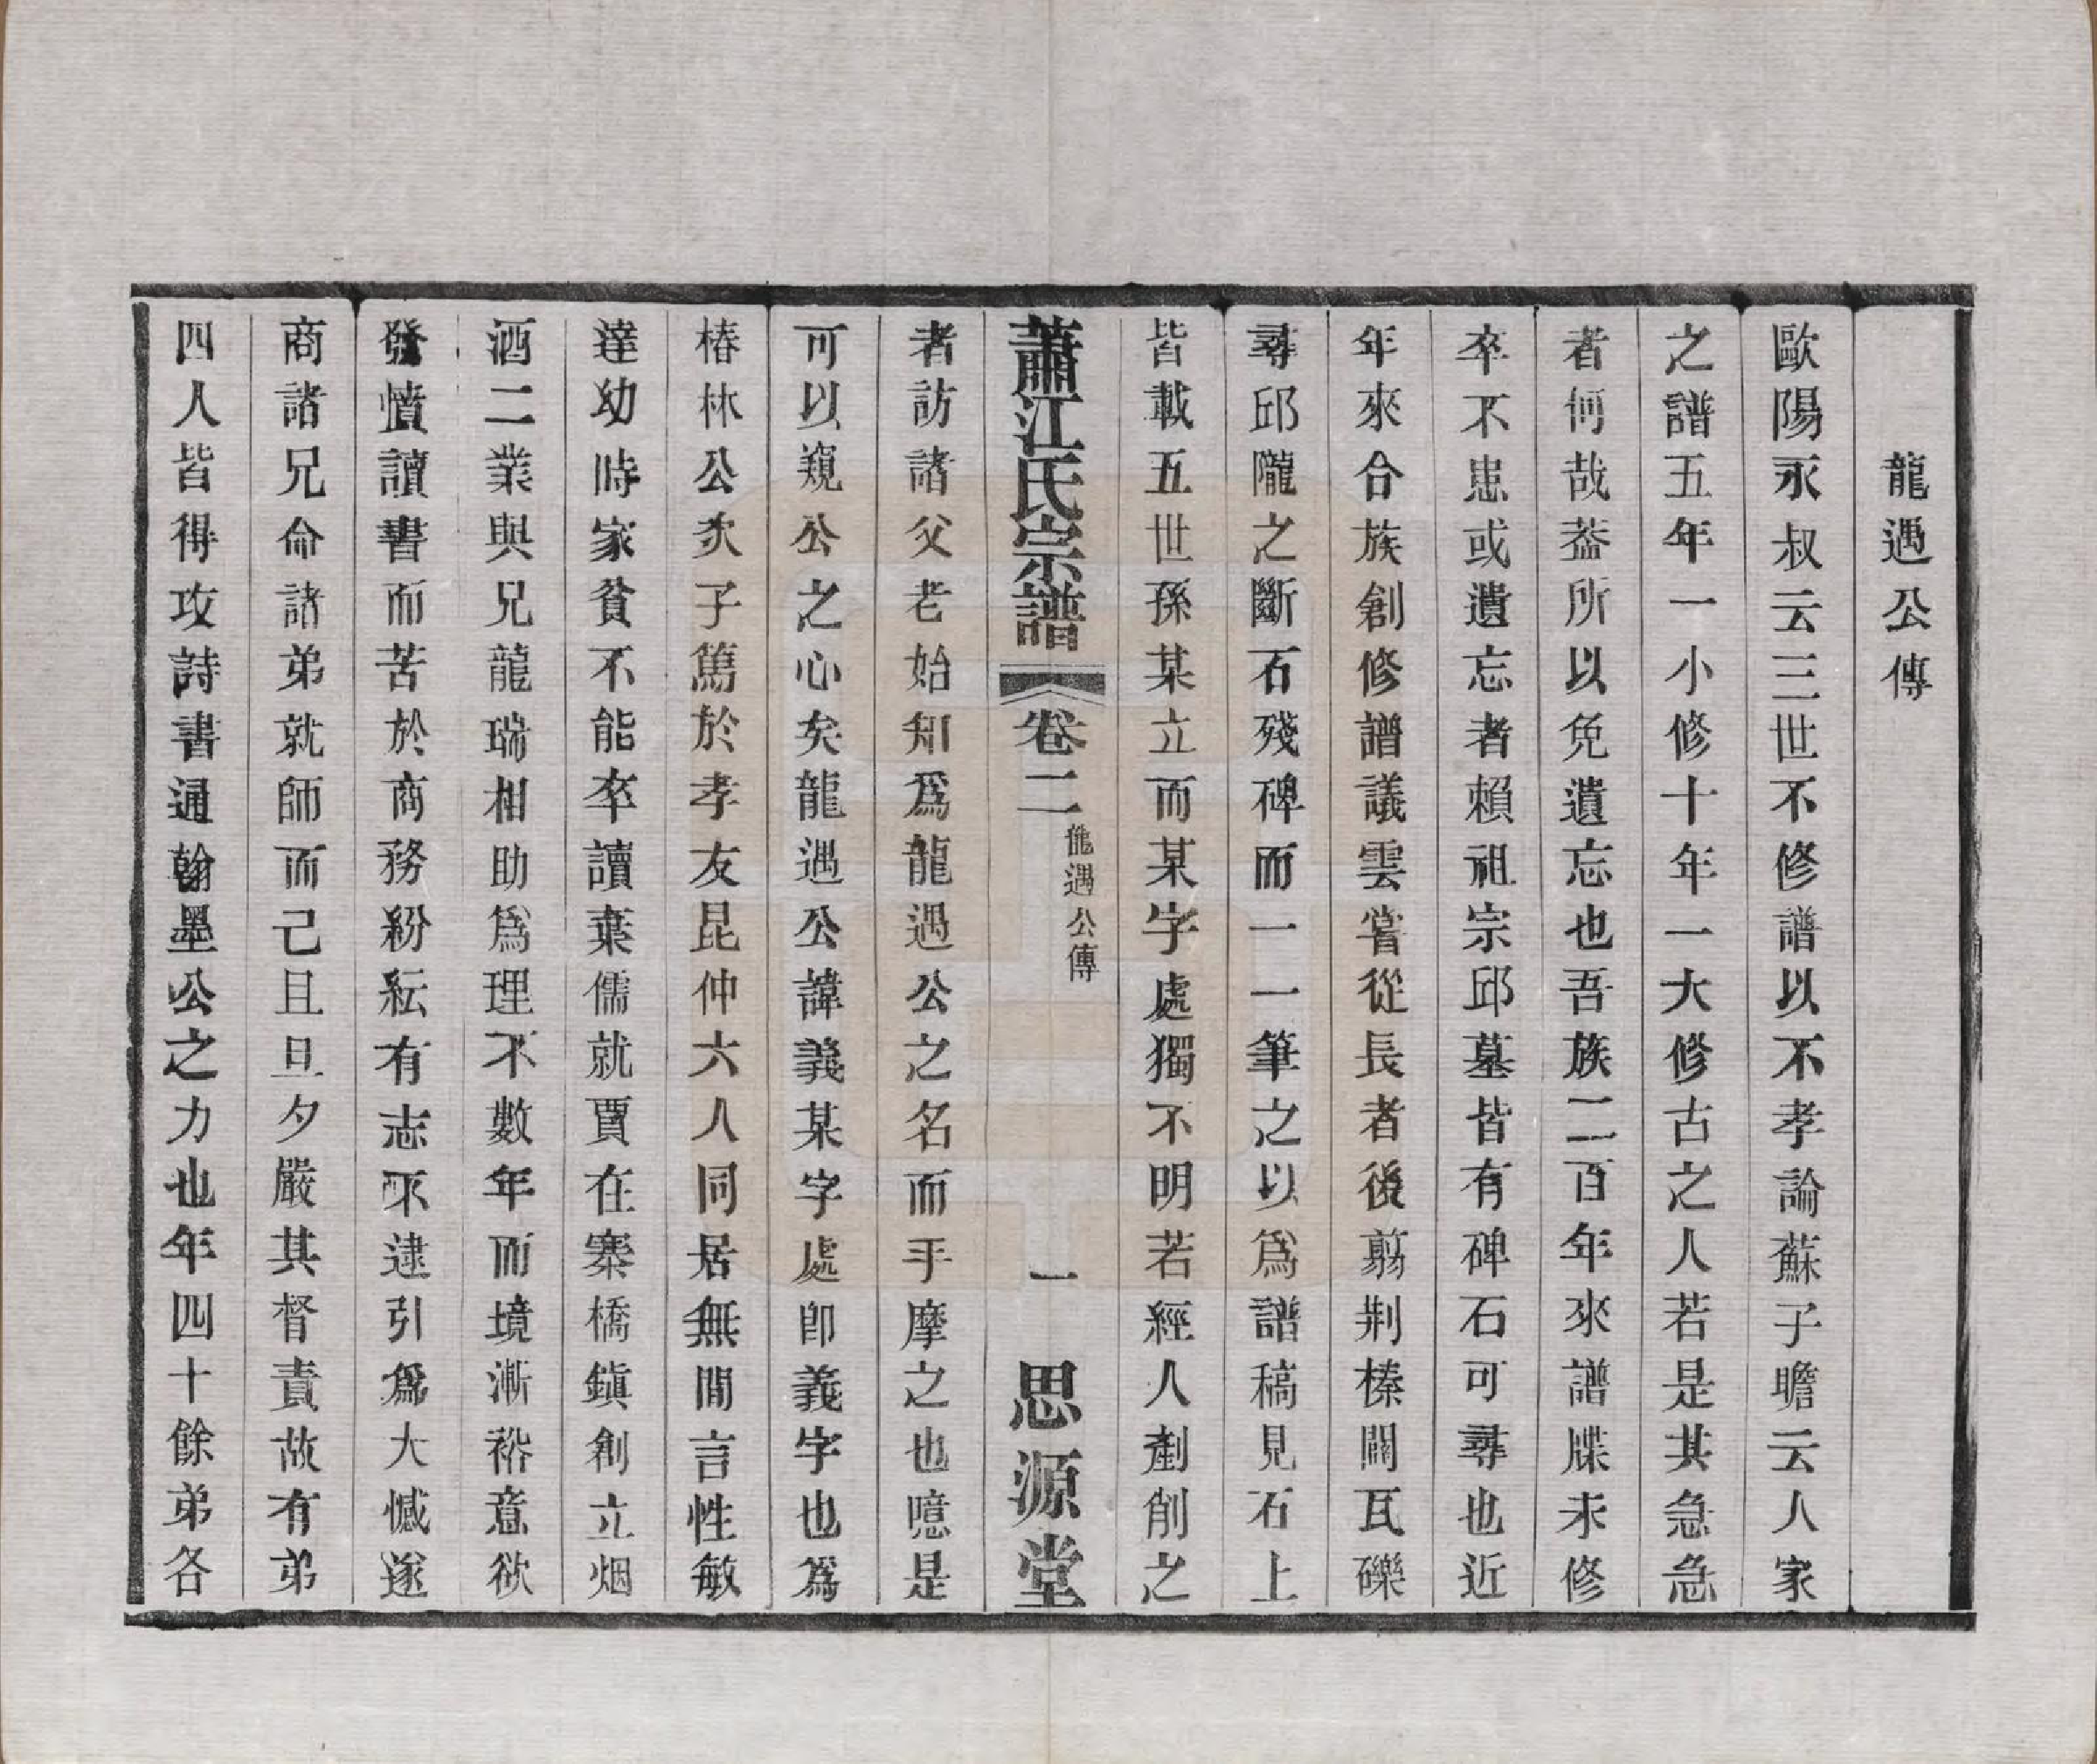 龍遇公傳
歐陽永叔云三世不修譜以不孝論蘇子瞻云人家
之譜五年一小修十年一大修古之人若是其急急
者何哉葢所以免遺忘也吾族二百年來譜牒未修
卒不患或遺忘者賴祖宗邱墓皆有碑石可尋也近
年來合族創修譜議雲嘗從長者後翦荆榛闢瓦礫
尋邱隴之斷石殘碑而一一筆之以爲譜稿見石上
皆載五世孫某立而某字處獨不明若經人剷削之
蕭江氏宗譜 卷二 龍遇公傳 一 思源堂
者訪諸父老始知爲龍遇公之名而手摩之也噫是
可以窺公之心矣龍遇公諱義某字處卽義字也爲
椿林公次子篤於孝友昆仲六人同居無間言性敏
達幼時家貧不能卒讀棄儒就賈在寨橋鎮創立烟
酒二業與兄龍瑞相助爲理不數年而境漸裕意欲
發憤讀書而苦於商務紛紜有志不逮引爲大憾遂
商諸兄命諸弟就師而己且旦夕嚴其督責故有弟
四人皆得攻詩書通翰墨公之力也年四十餘弟各